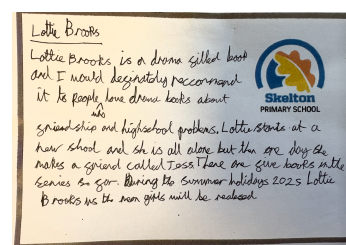 Lottie Brooks
Lottie Brooks is a drama filled book
and I would desginately reccommend
it to people who love drama books about
friendship and highschool problems. Lottie starts at a
new shool and she is all alone but then one day she
makes a friend called Jess. There are five books in the
series so far. During the summer holidays 2025 Lottie
Brooks vs the mean girls will be realesed
Skelton
PRIMARY SCHOOL